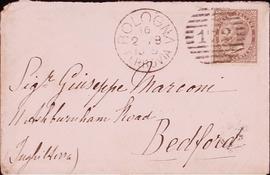 BOLOGNA
16
2 - 78
FERROVIA
Sigr Giuseppe Marconi
Washburnham Road
Bedford
(Inghilterra)